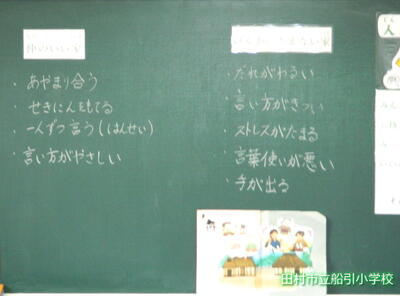 仲のいい家
・あやまり合う
・せきにんをもてる
・一人ずつ言う(はんせい)
・言い方がやさしい
けんかがたえない家
・だれがわるい
・言い方がきつい
・ストレスがたまる
・言葉使いが悪い
・手が出る
人
田村市立船引小学校